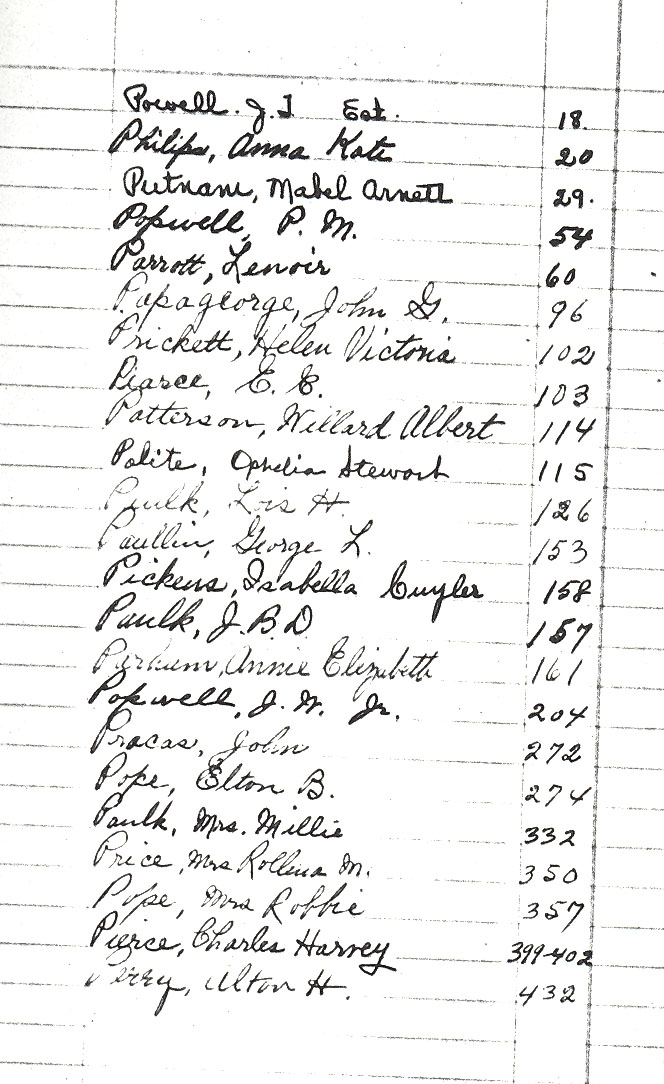 Powell. J. I Est. 18.
Philips, Anna Kate 20
Putnam, Mabel Arnett 29.
Popwell, P. M. 54
Parrott, Lenoir 60
Papageorge, John G. 96
Prickett, Helen Victoria 102
Piarce, E. E. 103
Patterson, Willard Albert 114
Polite, Ophelia Stewart 115
Paulk, Lois H. 126
Paullin, George L. 153
Pickens, Isabella Cuyler 158
Paulk, J. B. D 157
Parham, Annie Elizabeth 161
Popwell, J. W. Jr. 204
Pracas, John 272
Pope, Elton B. 274
Paulk, Mrs. Millie 332
Price, Mrs Rollina M. 350
Pope, Mrs Robbie 357
Pierce, Charles Harvey 399-402
Perry, Alton H. 432